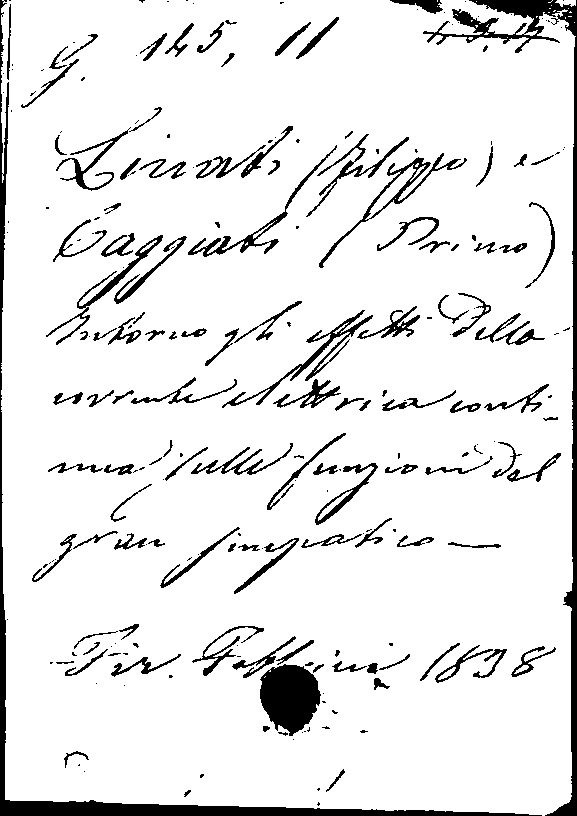 G. 125, 11 4.5.17
Linati (Filippo) e
Caggiati (Primo)
Intorno gli effetti della
corrente elettrica conti-
nua sulle funzioni del
gran simpatico —
Fir. 1838